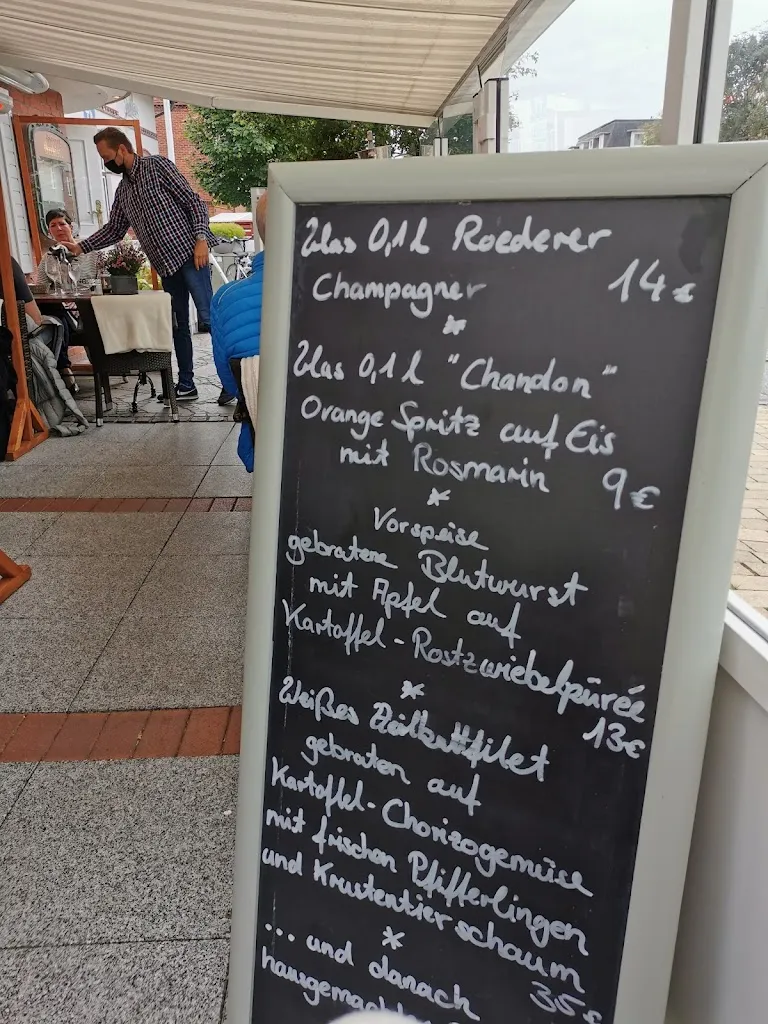 Glas 0,1 l Roederer
Champagner 14€
*
Glas 0,1 l "Chandon"
Orange Spritz auf Eis
mit Rosmarin 9€
*
Vorspeise
gebratene Blutwurst
mit Apfel auf
Kartoffel-Röstzwiebelpürée
13€
*
Weißes Heilbuttfilet
gebraten auf
Kartoffel-Chorizogemüse
mit frischen Pfifferlingen
und Krustentierschaum
35€
*
... und danach